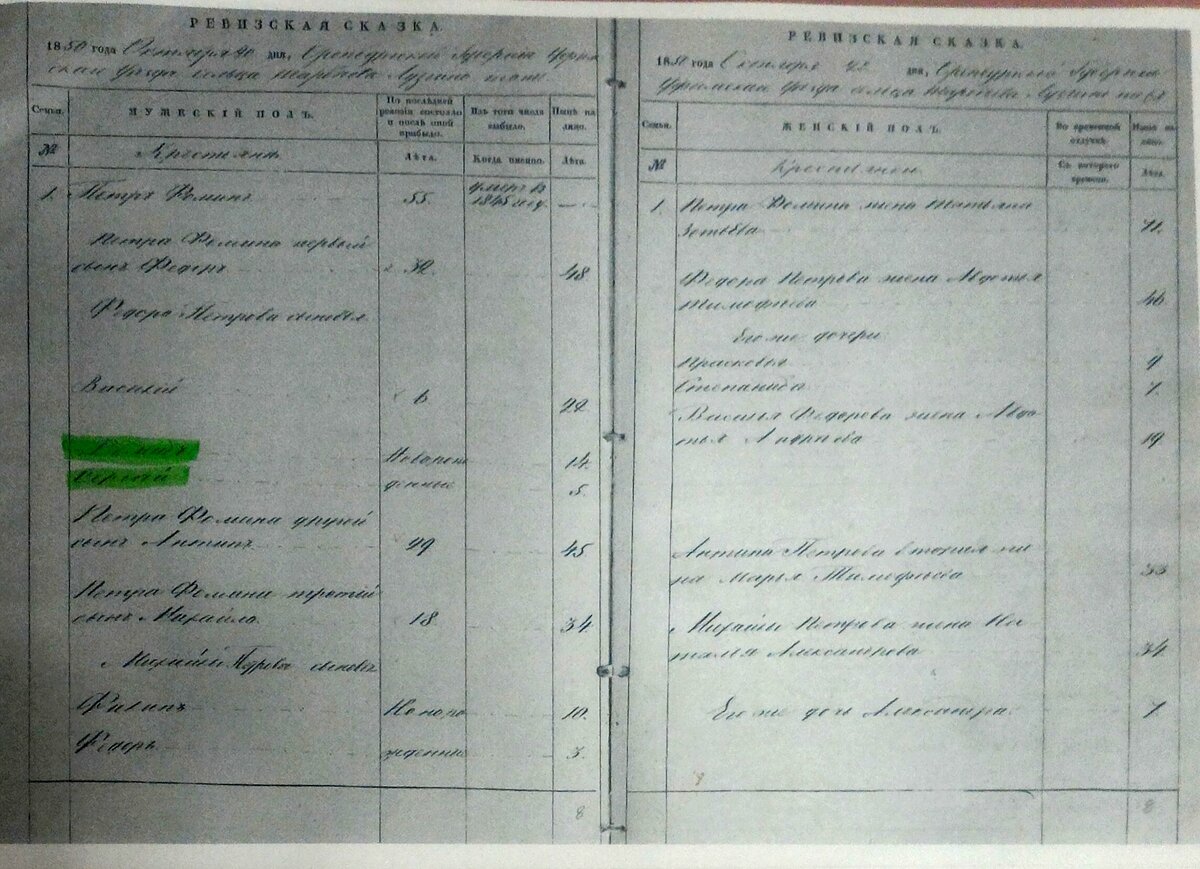 РЕВИЗСКАЯ СКАЗКА.
1850 года Октября дня, Оренбургской Губернии
уѣзда сельца
Семьи.
МУЖЕСКІЙ ПОЛЪ.
По послѣдней ревизіи состояло и послѣ оной прибыло.
Изъ того числа выбыло.
Нынѣ на лицо.
№
Крестьяне
Лѣта.
Когда именно.
Лѣта.
1. Петръ Фоминъ 55 умеръ въ 1845 году
Петра Фомина первый
сынъ Федоръ 32 48
Федора Петрова сыновья
Василій 6 22
Новорож 14
Сергѣй денные 5
Петра Фомина другой
сынъ Антипъ 29 45
Петра Фомина третій
сынъ Михайло 18 34
Михайлы Петрова сыновья
Филипъ Новоро 10
Федоръ жденные 3
8
РЕВИЗСКАЯ СКАЗКА.
1850 года Октября дня, Оренбургской Губернии
Уфимскаго уѣзда сельца
Семьи.
ЖЕНСКІЙ ПОЛЪ.
Во временной отлучкѣ.
Нынѣ на лицо.
№
Крестьяне
Съ котораго времени.
Лѣта.
1. Петра Фомина жена Татьяна
71
Федора Петрова жена Авдотья
Тимофѣева 46
Его же дочери
Прасковья 9
Степанида 7
Василья Федорова жена Авдо
тья 19
Антипа Петрова вторая же
на Марья Тимофѣева 33
Михайлы Петрова жена На
талья Александрова 34
Его же дочь Александра 7
8